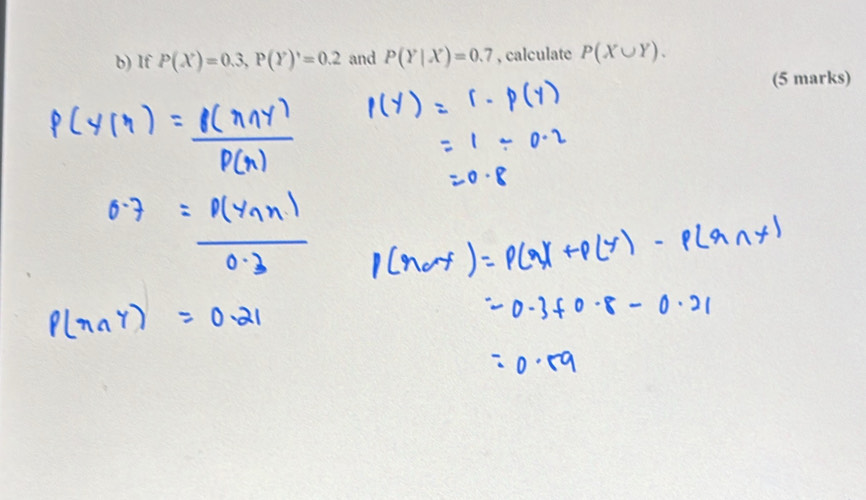 b) If P(X)=0.3, P(Y)'=0.2 and P(Y|X)=0.7, calculate P(X∪Y).
(5 marks)
P(Y|x) = P(x∩Y) / P(x)
0.7 = P(Y∩x) / 0.3
P(x∩Y) = 0.21
P(Y) = 1 - P(Y)
= 1 - 0.2
= 0.8
P(x∪Y) = P(x) + P(Y) - P(x∩Y)
= 0.3 + 0.8 - 0.21
= 0.89